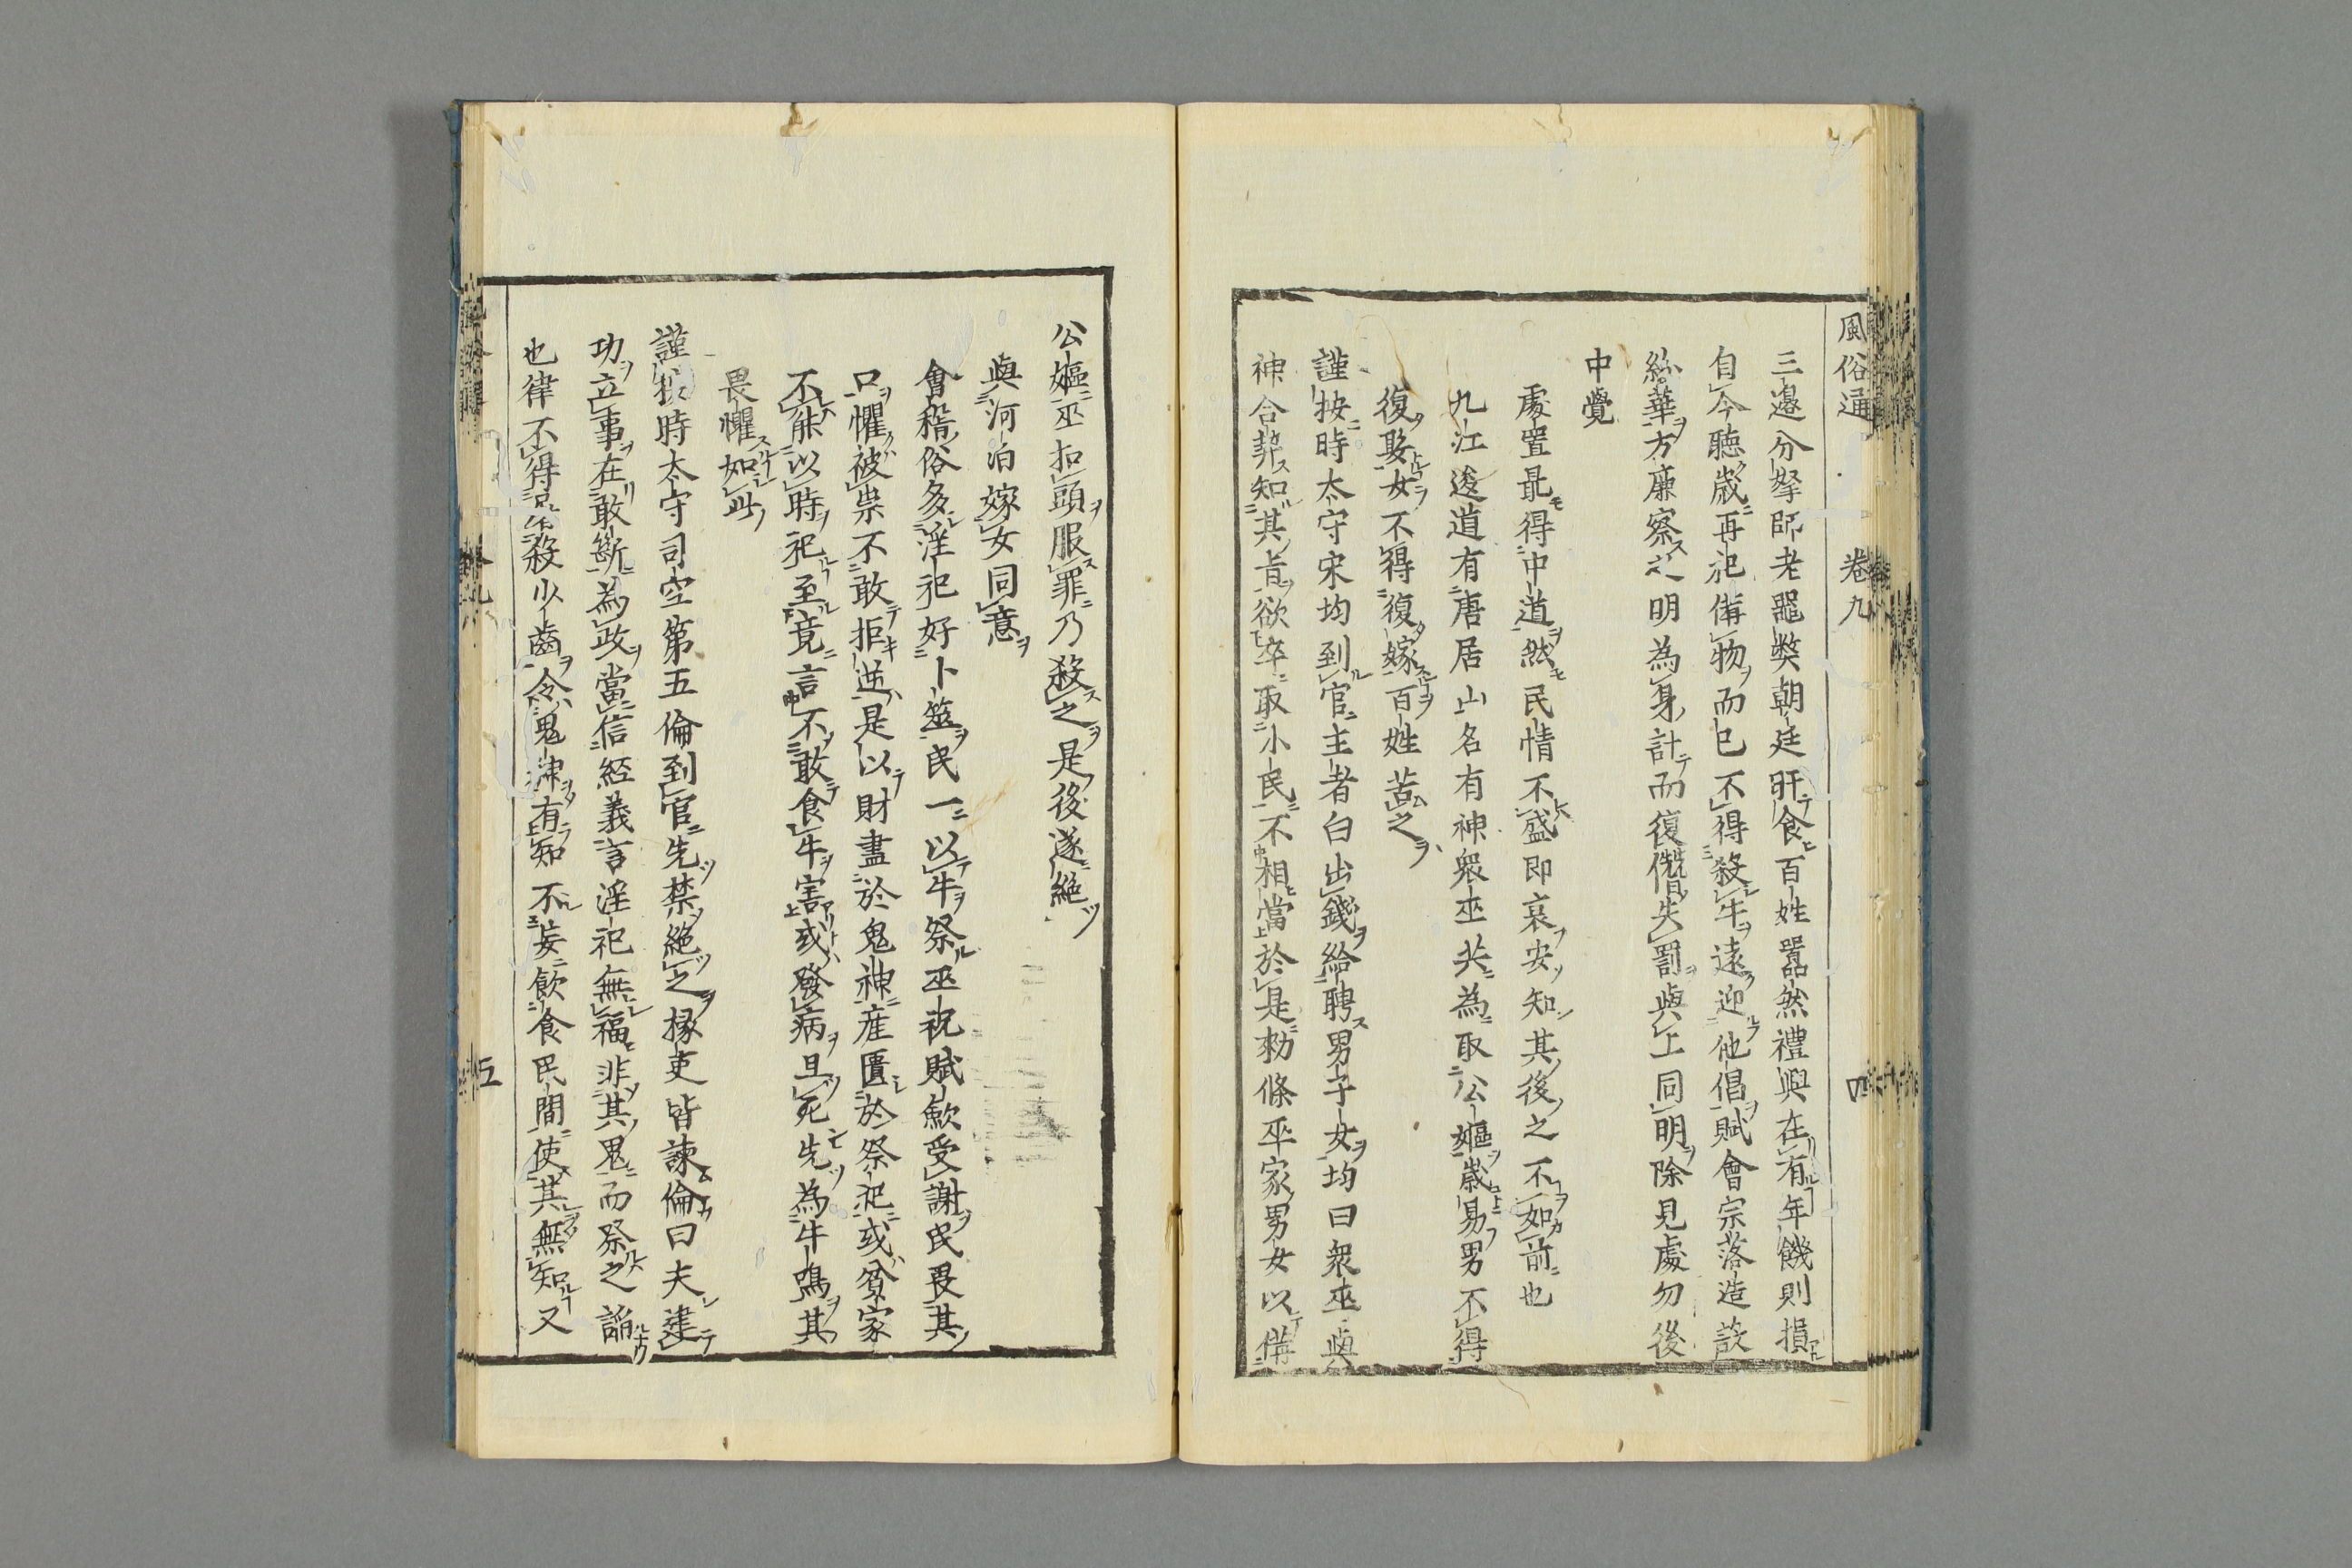 風俗通 卷九 四
三邉分拏師老噐弊朝廷旰食百姓嚻然禮與在有年饑則損
自今聽歳再祀備物而已不得殺牛遠迎他倡賦會宗落造設
紛華方廉察之明為身計而復僭失罰與上同明除見處勿後
中覺
處置最得中道然民情不盛即哀安知其後之不如前也
九江逡遒有唐居山名有神衆巫共為取公嫗歳易男不得
復娶女不得復嫁百姓苦之
謹按時太守宋均到官主者白出錢給聘男子女均曰衆巫與
神合契知其旨欲卒取小民不相當於是勑條巫家男女以備
公嫗巫扣頭服罪乃殺之是後遂絶
與河泊嫁女同意
會稽俗多淫祀好卜筮民一以牛祭巫祝賦歛受謝民畏其
口懼被祟不敢拒逆是以財盡於鬼神産匱於祭祀或貧家
不能以時祀至竟言不敢食牛害或發病且死先為牛鳴其
畏懼如此
謹按時太守司空第五倫到官先禁絶之掾吏皆諫倫曰夫建
功立事在敢斷為政當信經義言淫祀無福非其鬼而祭之謟
也律不得殺少齒令鬼神有知不妄飲食民間使其無知又
五